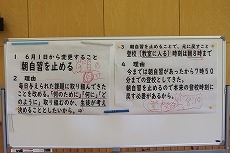 1 6月1日から変更すること
朝自習を止める
2 理由
毎日与えられた課題に取り組んできた
ことを改める。「何のために」「何に」「ど
のように」取り組むのか、生徒が考え
決めることとしたいから。
3 朝自習を止めることで、元に戻すこと
登校(教室に入る)時刻は8時まで
4 理由
今までは朝自習があったから7時50
分までの登校としてきた。
朝自習を止めるので本来の登校時刻に
戻す必要があるから。